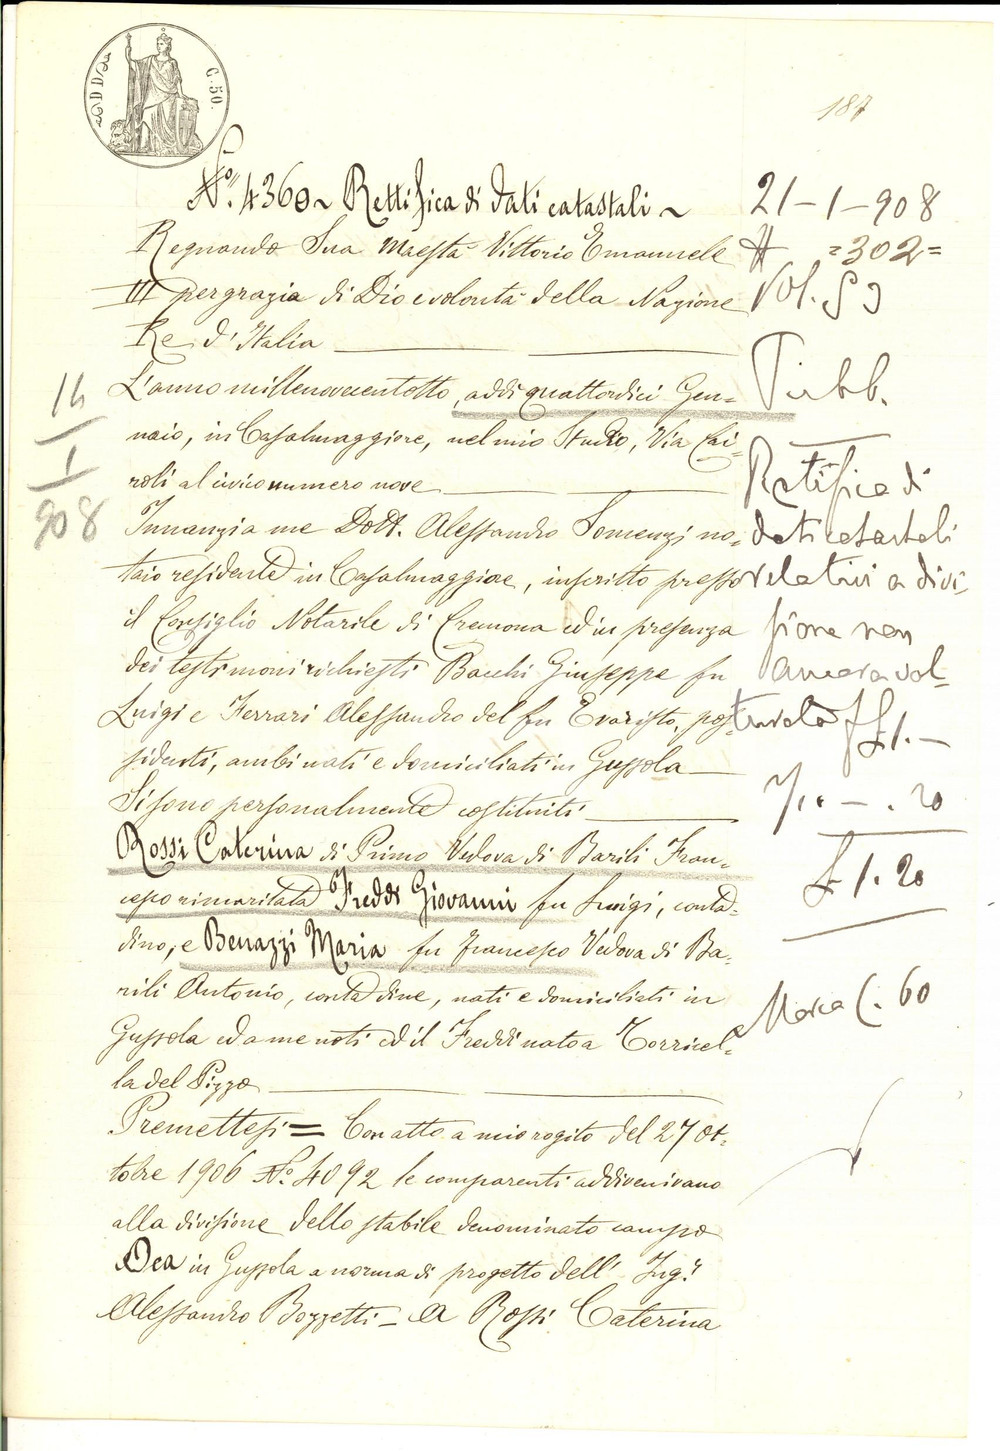 C. 50.
187
N.° 4360 ~ Rettifica di dati catastali ~
Regnando Sua Maestà Vittorio Emanuele
III per grazia di Dio e volontà della Nazione
Re d'Italia
L'anno millenovecentotto, addi quattordici Gen=
naio, in Casalmaggiore, nel mio Studio, Via Cai=
roli al civico numero nove
Innanzi a me Dott. Alessandro Somenzi no=
taio residente in Casalmaggiore, inscritto presso
il Consiglio Notarile di Cremona ed in presenza
dei testimoni richiesti Bacchi Giuseppe fu
Luigi e Ferrari Alessandro del fu Evaristo, pos=
sidenti, ambi nati e domiciliati in Gussola
Si sono personalmente costituiti
Rossi Caterina di Primo Vedova di Barili Fran=
cesco rimaritata Freddi Giovanni fu Luigi, conta=
dino, e Benazzi Maria fu Francesco Vedova di Ba=
rili Antonio, contadine, nati e domiciliati in
Gussola ed a me noti ed il Freddi nato a Torricel=
la del Pizzo
Premettesi = Con atto a mio rogito del 27 Ot=
tobre 1906 N.° 4092 le comparenti addivenivano
alla divisione dello stabile denominato campo
Dea in Gussola a norma di progetto dell' Ing.r
Alessandro Bozzetti = A Rossi Caterina
14
I
908
21-1-908
=302=
Vol. 59
Pubb.
Rettifica di
dati catastali
relativi a divi=
sione non
ancora vol=
turata £ 1.-
- . 20
£ 1. 20
Marca C. 60